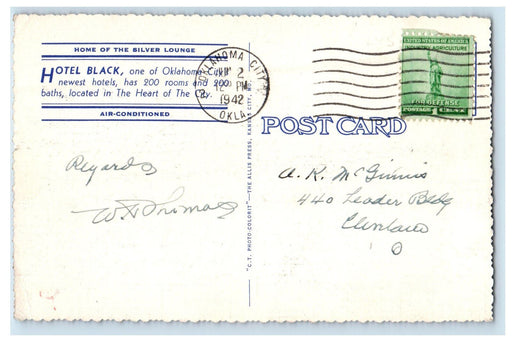 HOME OF THE SILVER LOUNGE
HOTEL BLACK, one of Oklahoma City's
newest hotels, has 200 rooms and 200
baths, located in The Heart of The City.
AIR-CONDITIONED
OKLAHOMA CITY
2
12 PM
1942
OKLA.
UNITED STATES OF AMERICA
INDUSTRY AGRICULTURE
FOR DEFENSE
POSTAGE 1 CENT
POST CARD
"C.T. PHOTO-COLORIT"—THE ALLIS PRESS, KANSAS CITY, MO.
Regards
W Thomas
A. K. McGinnis
440 Leader Bldg
Cleveland
O